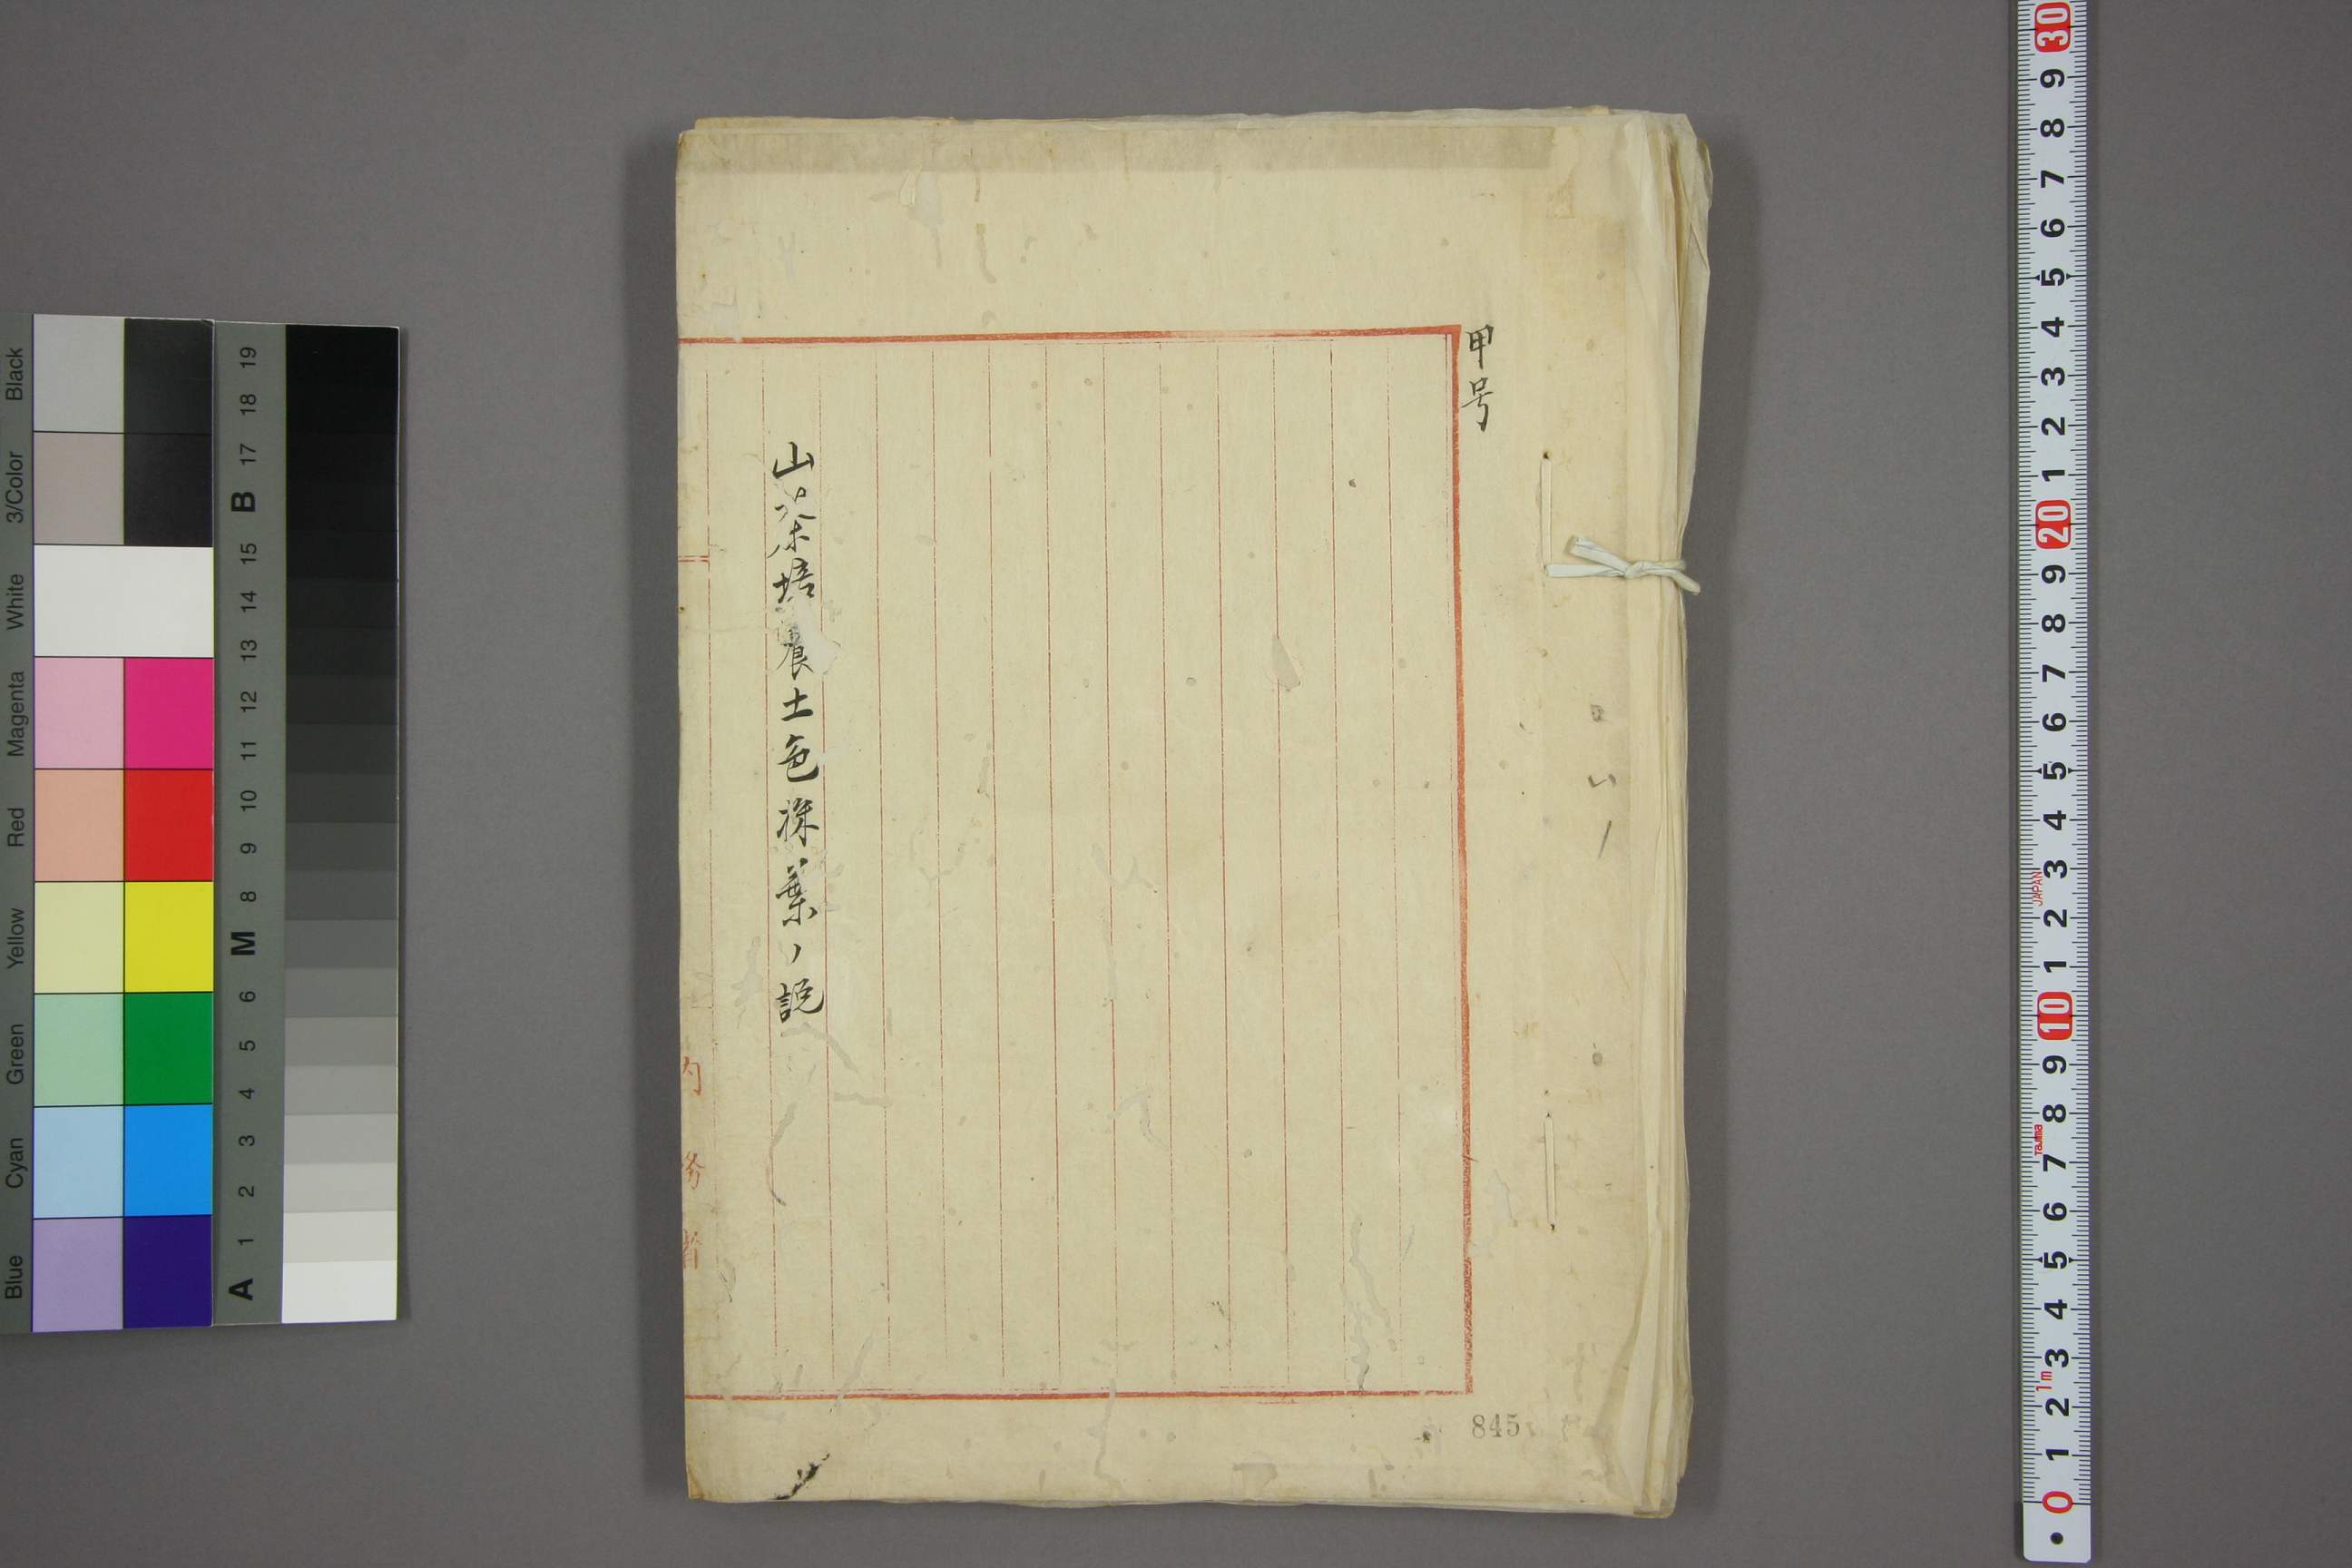 甲号
山茶培養土色深葉ノ説
内務省
845
Blue Cyan Green Yellow Red Magenta White 3/Color Black
A 1 2 3 4 5 6 M 8 9 10 11 12 13 14 15 B 17 18 19
0 1 2 3 4 5 6 7 8 9 10 1 2 3 4 5 6 7 8 9 20 1 2 3 4 5 6 7 8 9 30
1m
Tajima
JAPAN